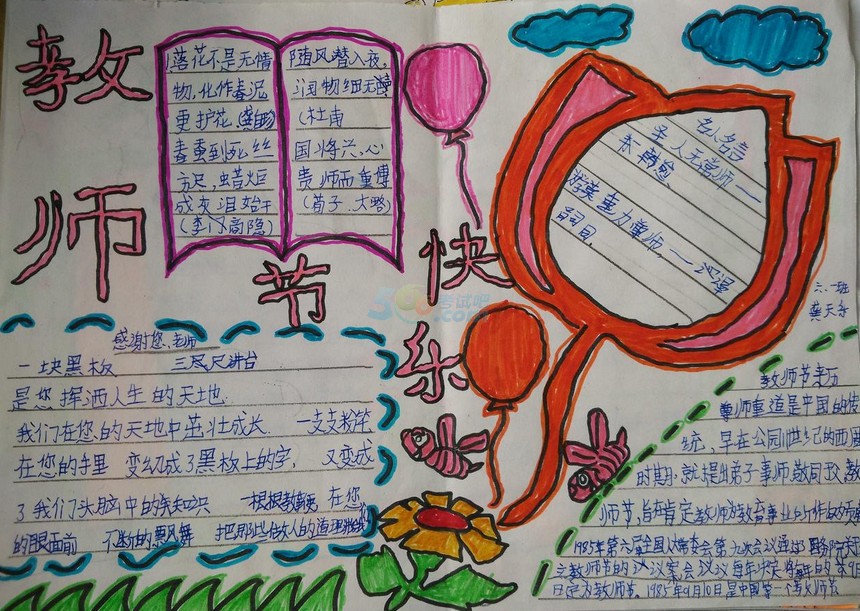 教师
节
快
乐
落花不是无情
物,化作春泥
更护花.(龚自珍)
春蚕到死丝
方尽,蜡炬
成灰泪始干
随风潜入夜,
润物细无
(杜甫
国将兴,心
贵师而重傅
(荀子.大略)
名人名言
圣人无常师——
韩愈
尊师
六.一班
龚天
感谢您,老师
一块黑板 三尺尺讲台
是您挥洒人生的天地.
我们在您的天地中茁壮成长. 一支支粉笔
在您的手里 变幻成了黑板上的字, 又变成
了我们头脑中的知识 一根根教鞭 在您
的眼面前 不断的飘风舞 把那些做人的道理
教师节来历
尊师重道是中国的传
统,早在公 的西周
时期,就提出弟子事师,敬同
师节,旨在肯定教师为教育事业所作的贡
1985年第六届全国人 常委会第九次会议通过 国务院关于
立教师节的议 会议 每年 的9
日定为教师节.1985年9月10日是中国第一个教师节